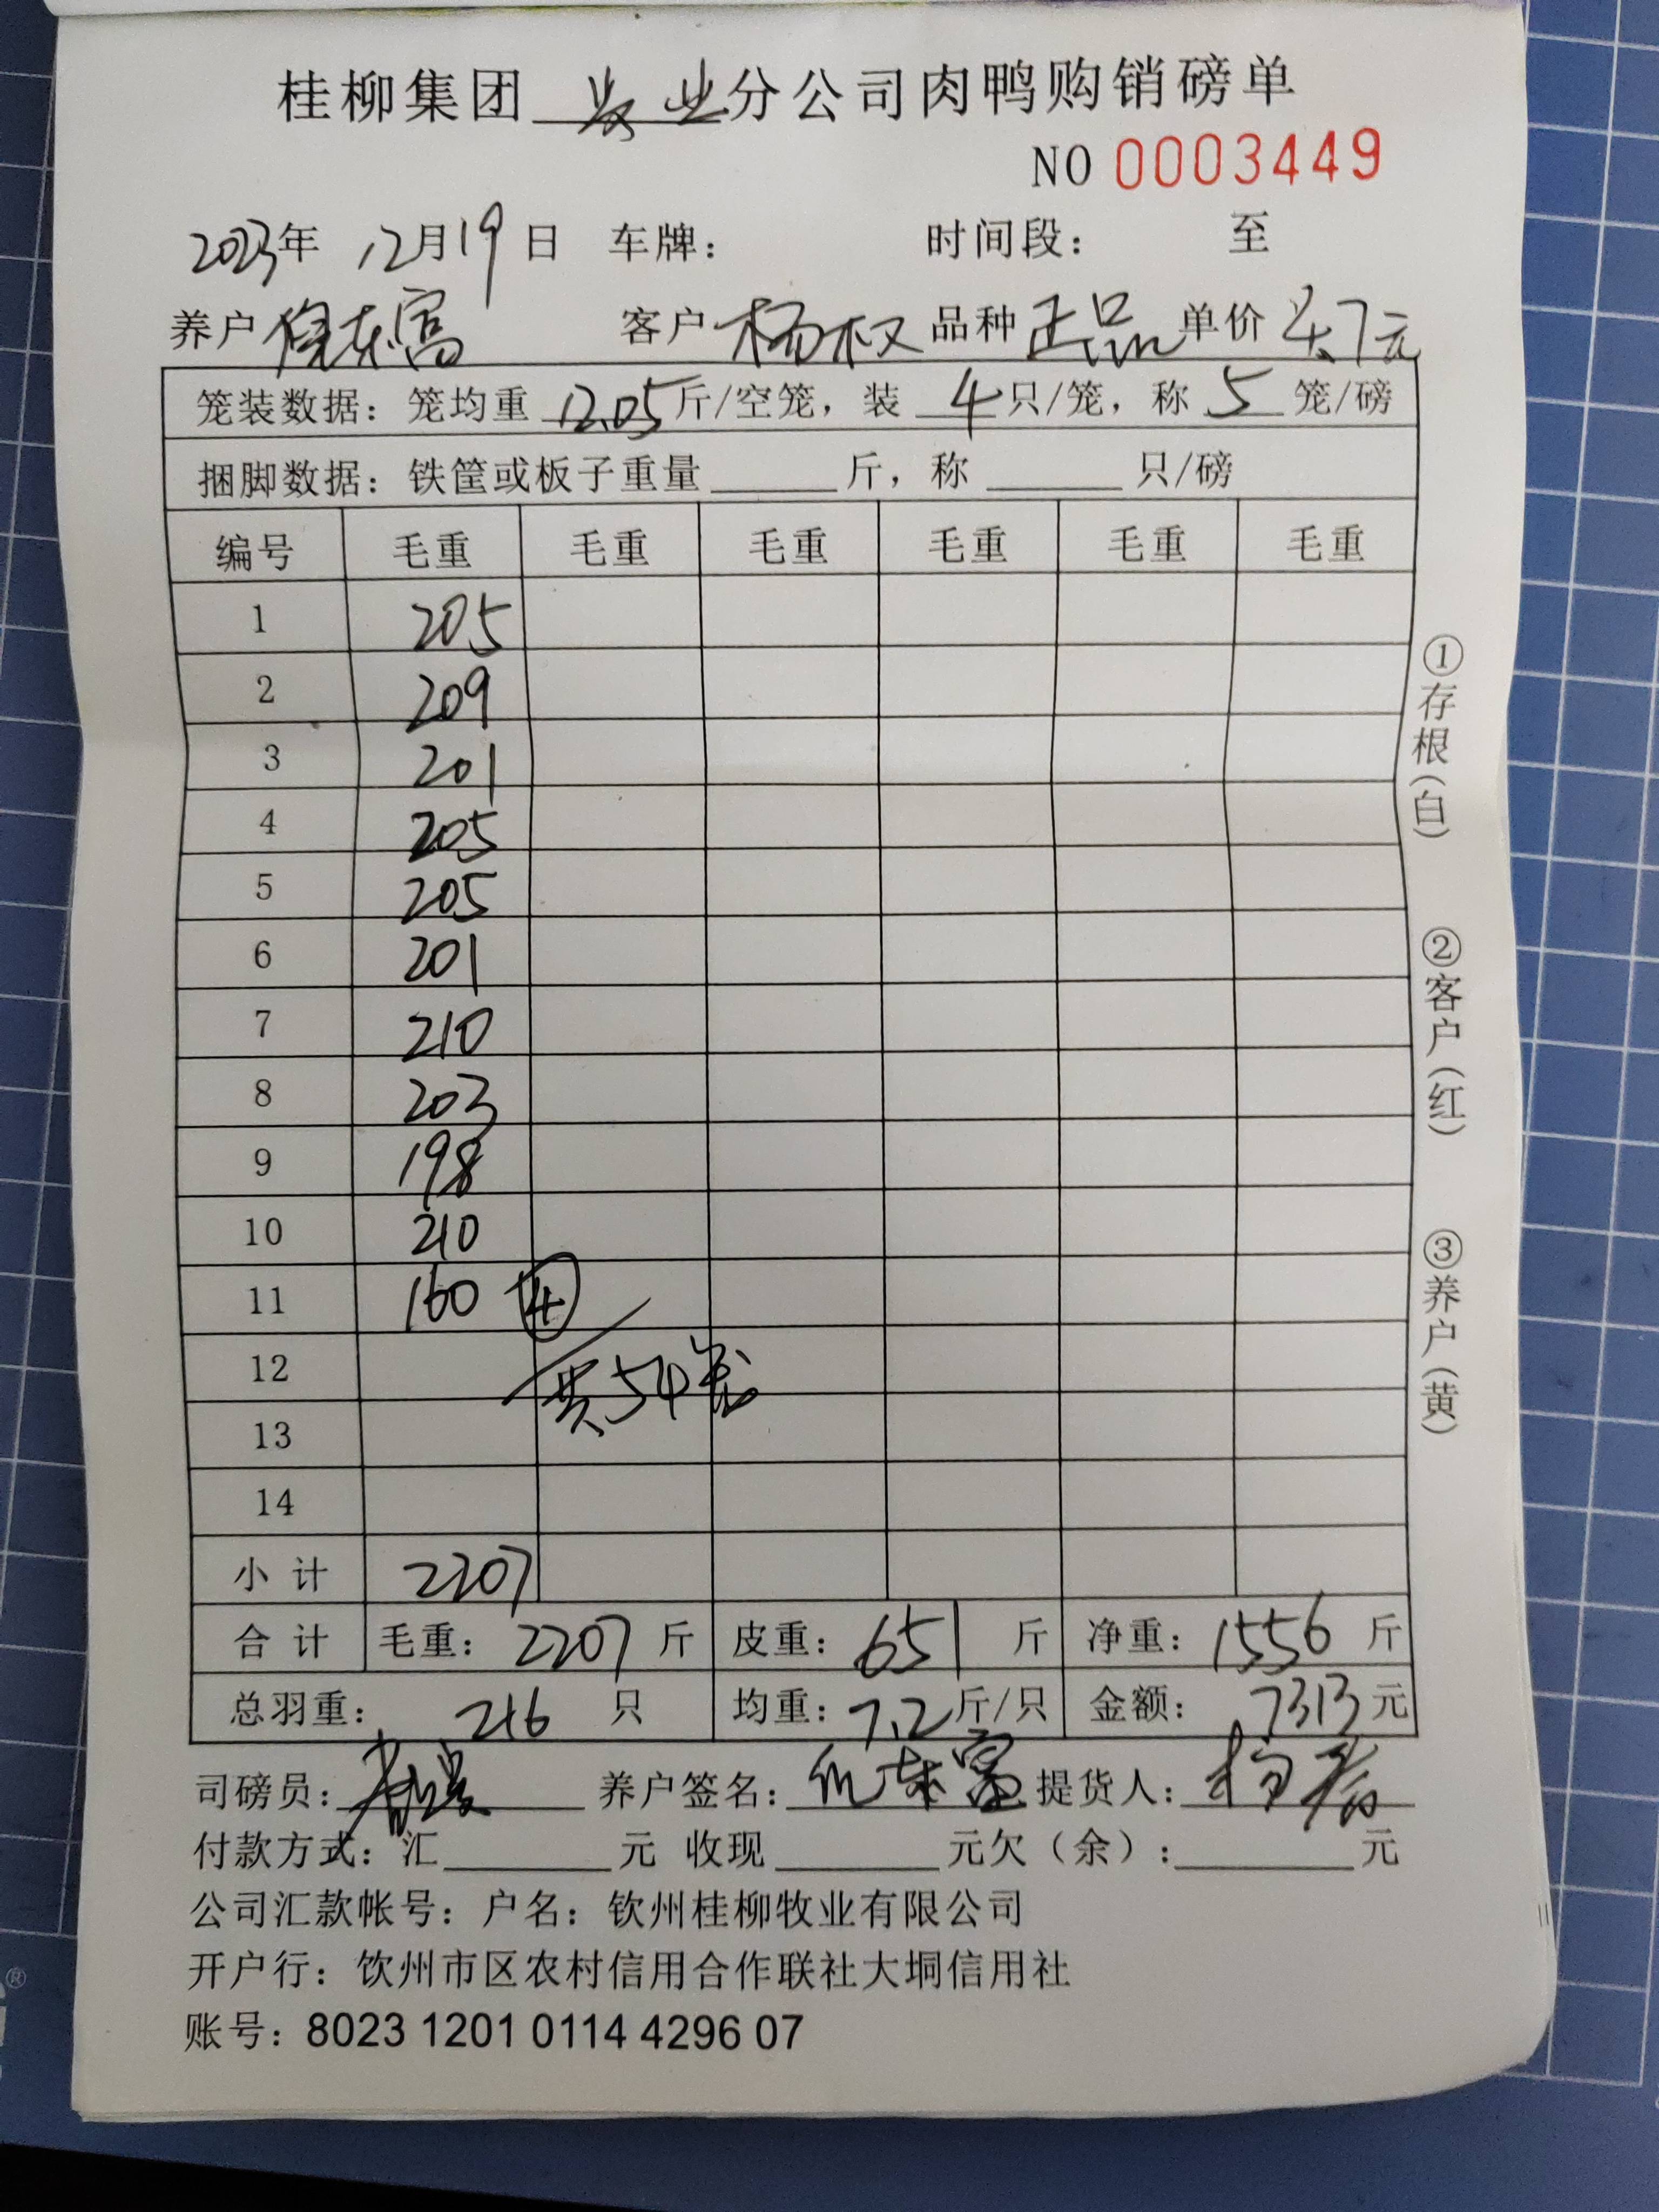 桂柳集团 农业 分公司肉鸭购销磅单
NO 0003449
2023年 12月19日 车牌： 时间段： 至
养户 东富 客户 杨权 品种 正品 单价 4.7元
笼装数据：笼均重 12.05 斤/空笼，装 4 只/笼，称 5 笼/磅
捆脚数据：铁筐或板子重量______斤，称______只/磅
编号 毛重 毛重 毛重 毛重 毛重 毛重
1 205
2 209
3 201
4 205
5 205
6 201
7 210
8 203
9 198
10 210
11 160 ④
12 共54笼
13
14
小 计 2207
合 计 毛重：2207 斤 皮重：651 斤 净重：1556 斤
总羽重： 216 只 均重：7.2斤/只 金额：7313元
司磅员： 养户签名： 东富 提货人： 杨
付款方式：汇______元 收现______元欠（余）：______元
公司汇款帐号：户名：钦州桂柳牧业有限公司
开户行：饮州市区农村信用合作联社大垌信用社
账号：8023 1201 0114 4296 07
①存根（白）
②客户（红）
③养户（黄）